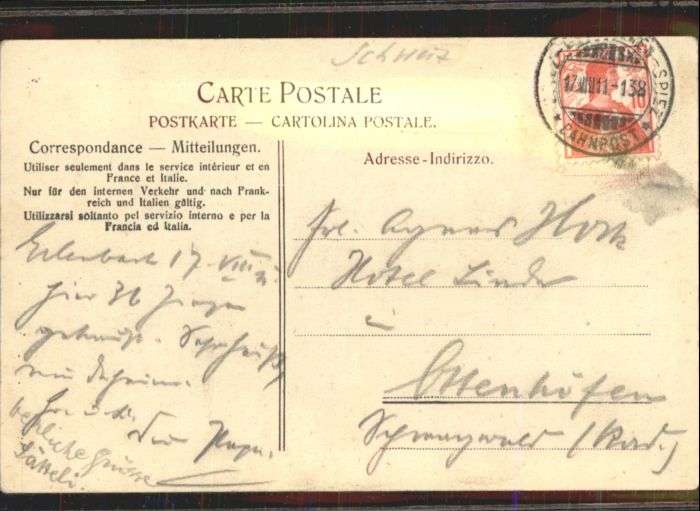 Schweiz
CARTE POSTALE
POSTKARTE — CARTOLINA POSTALE.
Correspondance — Mitteilungen.
Utiliser seulement dans le service intérieur et en
France et Italie.
Nur für den internen Verkehr und nach Frank-
reich und Italien gültig.
Utilizzarsi soltanto pel servizio interno e per la
Francia ed Italia.
Adresse-Indirizzo.
SPIEZ
17.VIII.11-138
BAHNPOST
10
Erlenbach 17. VIII 11.
hier 30
gekauft.
Dein Papa.
herzliche Grüsse
Frl. Agnes
Hotel Linde
in
Ottenhöfen
Schwarzwald (Bad.)